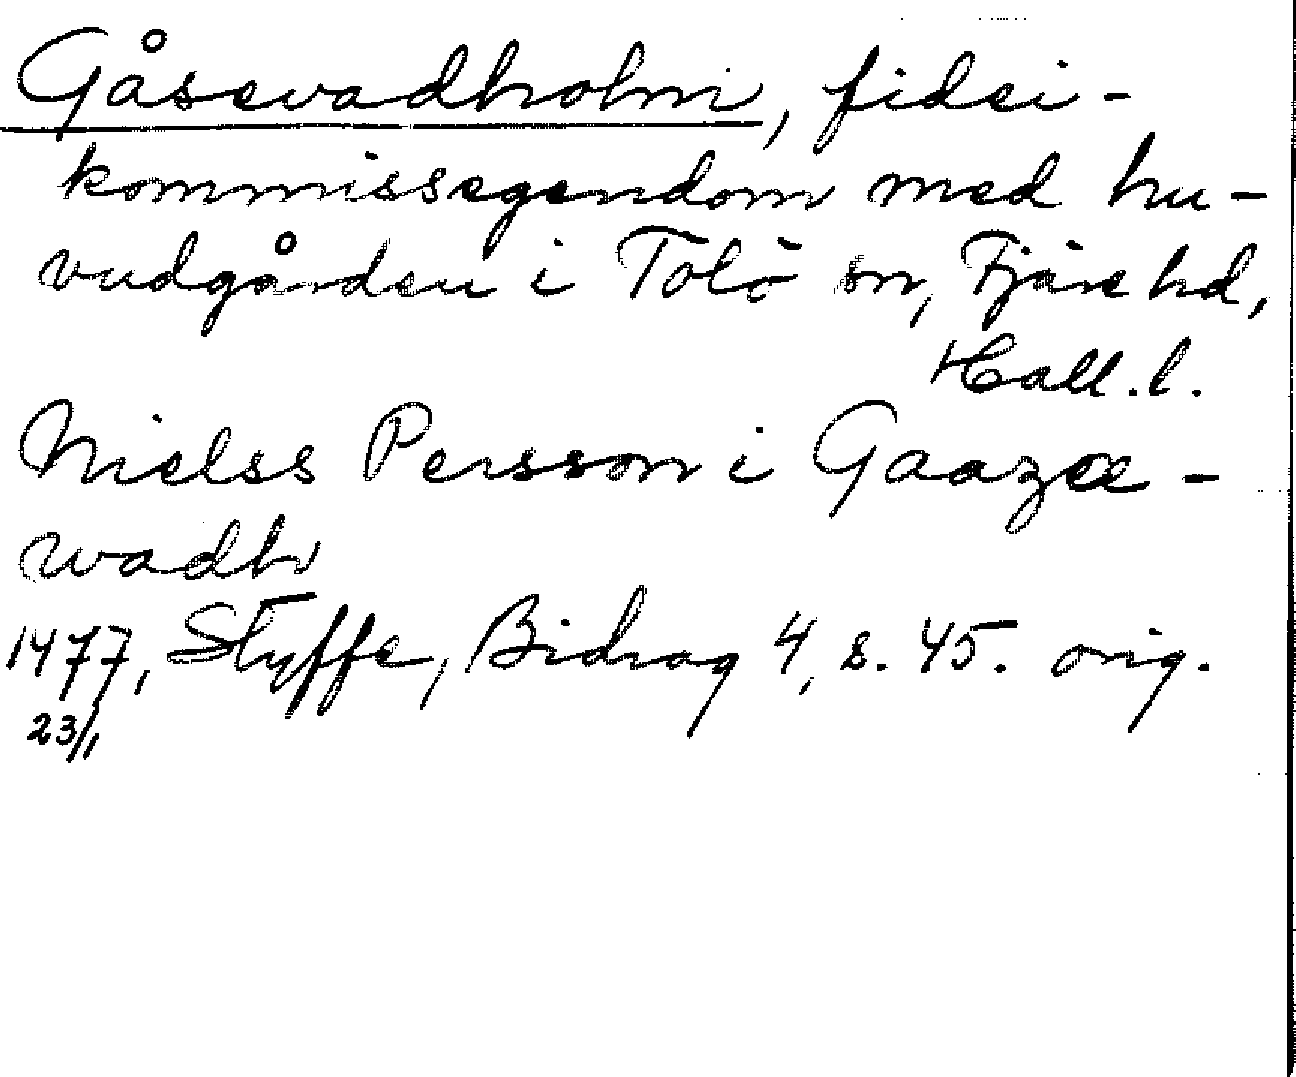 Gåsevadholm, fidei-
kommissegendom med hu-
vudgården i Tölö sn, Fjäre hd,
Hall. l.
Nielss Persson i Gaazæ-
wadh
1477, Styffe, Bidrag 4, s. 45. orig.
23/1